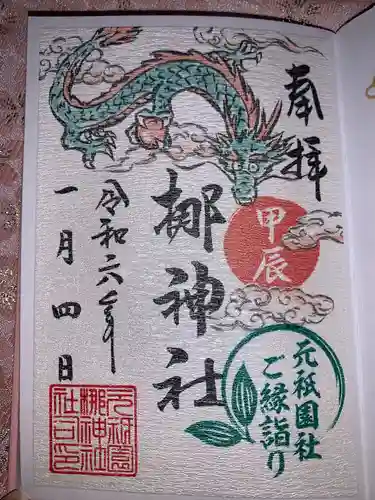 奉拝
甲辰
梛神社
令和六年
一月四日
元祇園社
ご縁詣り
元祇園
梛神社
社之印